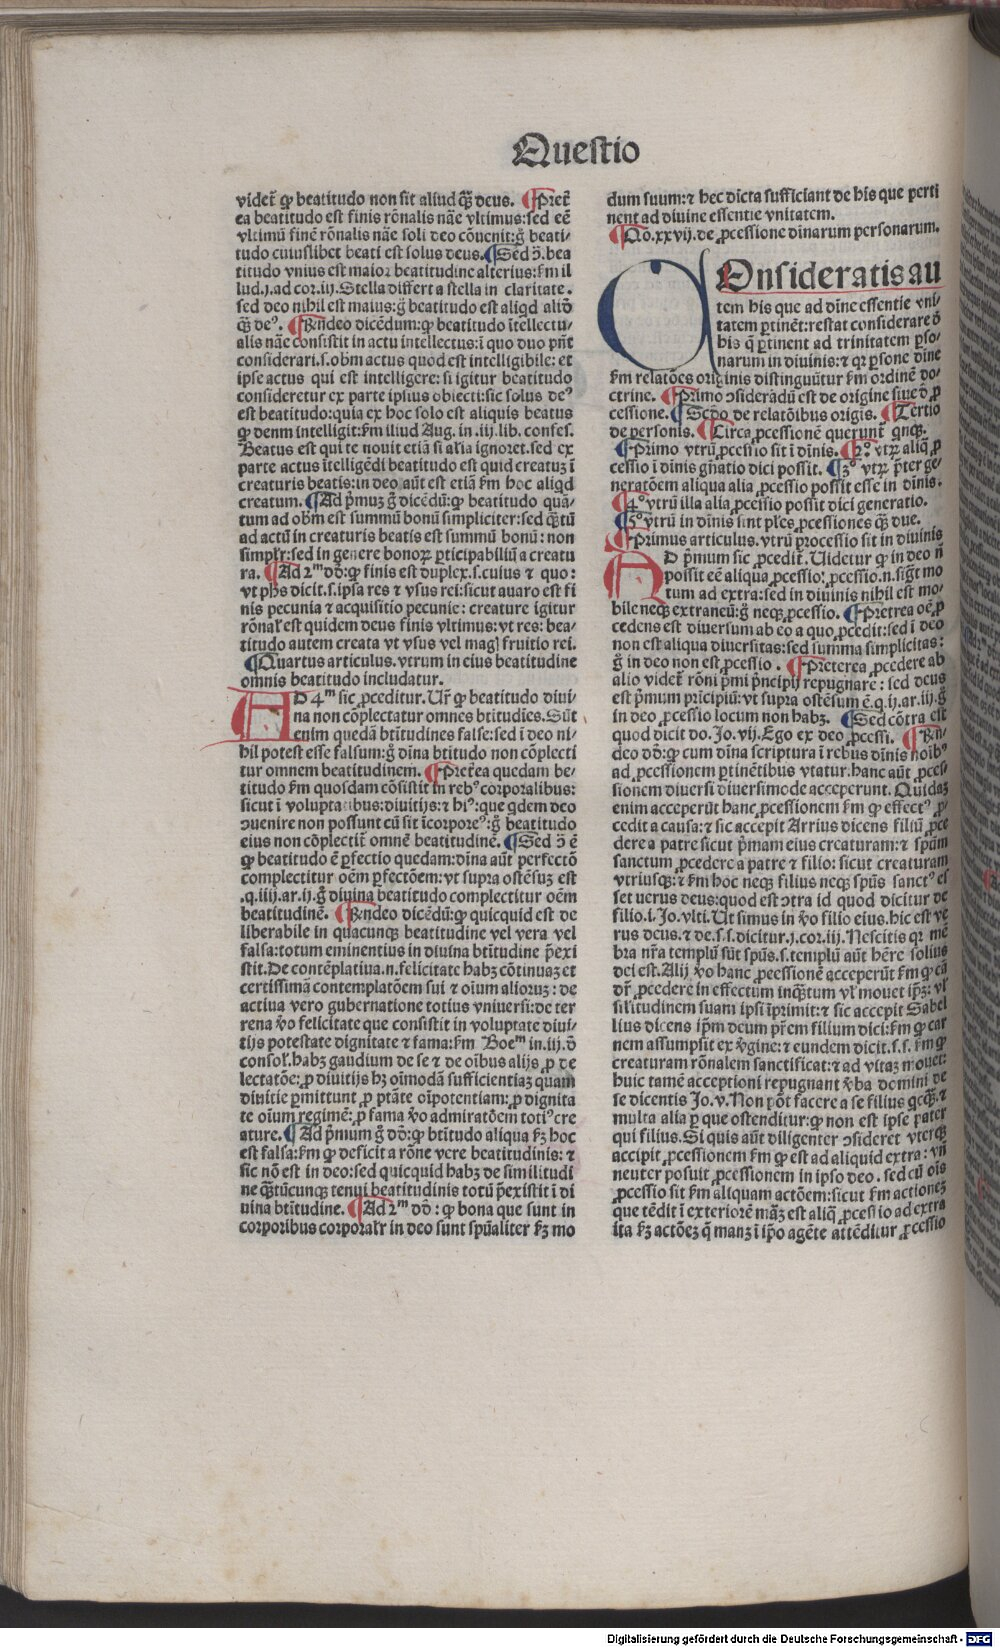 Questio
videt᷑ ꝙ beatitudo non sit aliud qͣ̄ deus. ¶ Pret᷑
ea beatitudo est finis rōnalis nāe vltimus: sed eē
vltimū finē rōnalis nāe soli deo cōuenit: g̊ beati⸗
tudo cuiuslibet beati est solus deus. ¶ Sed ↄ̄. bea
titudo vnius est maior beatitudine alterius: ẜm il
lud .j. ad cor. iij. Stella differt a stella in claritate.
sed deo nihil est maius: g̊ beatitudo est aliqd aliō
qͣ̄ deꝰ. ¶ Rn̄deo dicēdum: ꝙ beatitudo ītellectu⸗
alis nāe consistit in actu intellectus: ī quo duo pn̄t
considerari. s. obm actus quod est intelligibile: et
ipse actus qui est intelligere: si igitur beatitudo
consideretur ex parte ipsius obiecti: sic solus deꝰ
est beatitudo: quia ex hoc solo est aliquis beatus
ꝙ deum intelligit: ẜm illud Aug. in .iij. lib. confes.
Beatus est qui te nouit etiā si alia ignoret. sed ex
parte actus ītelligēdi beatitudo est quid creatuꝫ ī
creaturis beatis: in deo aūt est etiā ẜm hoc aliqd
creatum. ¶ Ad p̄muꝫ g̊ dicēdū: ꝙ beatitudo quā⸗
tum ad obm est summū bonū simpliciter: sed qͣ̄tū
ad actū in creaturis beatis est summū bonū: non
simplr̄: sed in genere bonoꝝ ꝑticipabiliū a creatu
ra. ¶ Ad 2ᵐ dō: ꝙ finis est duplex. s. cuius ⁊ quo:
vt ph̄s dicit. s. ipsa res ⁊ vsus rei: sicut auaro est fi
nis pecunia ⁊ acquisitio pecunie: creature igitur
rōnal᷑ est quidem deus finis vltimus: vt res: bea⸗
titudo autem creata vt vsus vel magꝭ fruitio rei.
¶ Quartus articulus. vtrum in eius beatitudine
omnis beatitudo includatur.
AD 4ᵐ sic ꝓceditur. Ur̄ ꝙ beatitudo diui⸗
na non cōplectatur omnes btitudīes. Sūt
enim quedā btītudines false: sed ī deo ni⸗
hil potest esse falsum: g̊ dīna btītudo non cōplecti
tur omnem beatitudinem. ¶ Pret᷑ea quedam be⸗
titudo ẜm quosdam cōsistit in rebꝰ corporalibus:
sicut ī voluptatibus: diuitijs: ⁊ hiꝰ: que qdem deo
ↄuenire non possunt cū sit īcorporeꝰ: g̊ beatitudo
eius non cōplectit᷑ omnē beatitudinē. ¶ Sed ↄ̄ ē
ꝙ beatitudo ē ꝑfectio quedam: dīna aūt perfectō
complectitur oēm ꝑfectōem: vt supra ostēsuꝫ est
.q. iiij. ar. ij. g̊ diuina beatitudo complectitur oēm
beatitudinē. ¶ Rn̄deo dicēdū: ꝙ quicquid est de
siderabile in quacunqꝫ beatitudine vel vera vel
falsa: totum eminentius in diuina btītudine p̄exi
stit. De contēplatiua .n. felicitate habꝫ cōtinuaꝫ et
certissimā contemplatōem sui ⁊ oīum alioruꝫ: de
actiua vero gubernatione totius vniuersi: de ter
rena ꝟo felicitate que consistit in voluptate diui⸗
tijs potestate dignitate ⁊ fama: ẜm Boeᵐ in .iij. ō
consol᷑. habꝫ gaudium de se ⁊ de oībus alijs ꝓ de
lectatōe: ꝓ diuitijs hꝫ oīmodā sufficientiaꝫ quam
diuitie ꝓmittunt ꝓ ptāte oīpotentiam: ꝓ dignita
te oīum regimē: ꝓ fama ꝟo admiratōem totiꝰ cre
ature. ¶ Ad p̄mium g̊ dō: ꝙ btītudo aliqua ẜꝫ hoc
est falsa: ẜm ꝙ deficit a rōne vere beatitudinis: ⁊
sic nō est in deo: sed quicquid habꝫ de similitudi
ne qͣ̄tūcunqꝫ tenui beatitudinis totū p̄existit ī di
uina btītudine. ¶ Ad 2ᵐ dō: ꝙ bona que sunt in
corporibus corporalr̄ in deo sunt spūaliter ẜꝫ mo
dum suum: ⁊ hec dicta sufficiant de his que perti
nent ad diuine essentie vnitatem.
¶ Qo. xxvij. de ꝓcessione dīnarum personarum.
COnsideratis au
tem his que ad dīne essentie vni⸗
tatem ꝑtinēt: restat considerare ō
his q̄ ꝑtinent ad trinitatem ꝑso⸗
narum in diuinis: ⁊ qꝛ ꝑsone dīne
ẜm relatōes originis distinguūtur ẜm ordinē do⸗
ctrine. ¶ Primo ↄsiderādū est de origine siue ō ꝓ
cessione. ¶ Scd̄o de relatōibus origīs. ¶ Tertio
de personis. ¶ Circa ꝓcessionē querunt᷑ qnqꝫ.
¶ Primo vtrū ꝓcessio sit ī dīnis. ¶ 2ꝰ vtꝝ aliq̄ ꝓ
cessio ī dīnis gn̄atio dici possit. ¶ 3ꝰ vtꝝ p̄ter ge⸗
neratōem aliqua alia ꝓcessio possit esse in dīnis.
¶ 4ꝰ vtrū illa alia ꝓcessio possit dici generatio.
¶ 5ꝰ vtrū in dīnis sint pl̄es ꝓcessiones qͣ̄ due.
¶ Primus articulus. vtrū processio sit in diuinis
AD p̄mum sic ꝓcedit᷑. Uidetur ꝙ in deo n̄
possit eē aliqua ꝓcessio: ꝓcessio .n. sigt̄ mo
tum ad extra: sed in diuinis nihil est mo⸗
bile neqꝫ extraneū: g̊ neqꝫ ꝓcessio. ¶ Pretrea oē ꝓ
cedens est diuersum ab eo a quo ꝓcedit: sed ī deo
non est aliqua diuersitas: sed summa simplicitas:
g̊ in deo non est ꝓcessio. ¶ Preterea ꝓcedere ab
alio videt᷑ rōni p̄mi p̄ncipij repugnare: sed deus
est p̄mum pricipiū: vt supra ostēsum ē .q. ij. ar. iij. g̊
in deo ꝓcessio locum non habꝫ. ¶ Sed cōtra est
quod dicit do. Jo. vij. Ego ex deo ꝓcessi. ¶ Rn̄⸗
deo dō: ꝙ cum dīna scriptura ī rebus dīnis noībꝰ
ad ꝓcessionem ꝑtinētibus vtatur. hanc aūt ꝓces⸗
sionem diuersi diuersimode acceperunt. Quidaꝫ
enim acceperūt hanc ꝓcessionem ẜm ꝙ effectꝰ ꝓ
cedit a causa: ⁊ sic accepit Arrius dicens filiū ꝓce
dere a patre sicut p̄mam eius creaturam: ⁊ spūm
sanctum ꝓcedere a patre ⁊ filio: sicut creaturam
vtriusqꝫ: ⁊ ẜm hoc neqꝫ filius neqꝫ spūs sanctꝰ es
set verus deus: quod est ↄtra id quod dicitur de
filio .i. Jo. vlti. Ut simus in ꝟo filio eius. hic est ve
rus deus. ⁊ de .s. s. dicitur .j. cor. iij. Nescitis qꝛ mē
bra nr̄a templū sūt spūs. s. templū aūt hēre solius
dei est. Alij ꝟo hanc ꝓcessionē acceperūt ẜm ꝙ cā
dr̄ ꝓcedere in effectum inqͣ̄tum vl᷑ mouet ip̄ꝫ: vl᷑
sil᷑itudinem suam ipsi īprimit: ⁊ sic accepit Sabel
lius dicens ip̄m deum pr̄em filium dici: ẜm ꝙ car
nem assumpsit ex ꝟgine: ⁊ eundem dicit .s. s. ẜm ꝙ
creaturam rōnalem sanctificat: ⁊ ad vitaꝫ mouet:
huic tamē acceptioni repugnant ꝟba domini de
se dicentis Jo. v. Non pōt facere a se filius qcqͣ̄. ⁊
multa alia ꝑ que ostenditur: ꝙ non est ipse pater
qui filius. Si quis aūt diligenter ↄsideret vterqꝫ
accipit ꝓcessionem ẜm ꝙ est ad aliquid extra: vn̄
neuter posuit ꝓcessionem in ipso deo. sed cū oīs
ꝓcessio sit ẜm aliquam actōem: sicut ẜm actioneꝫ
que tēdit ī exteriorē māꝫ est aliq̄ ꝓcessio ad extra
ita ẜꝫ actōeꝫ q̄ manꝫ ī ip̄o agēte attēditur ꝓcessio
Digitalisierung gefördert durch die Deutsche Forschungsgemeinschaft - DFG